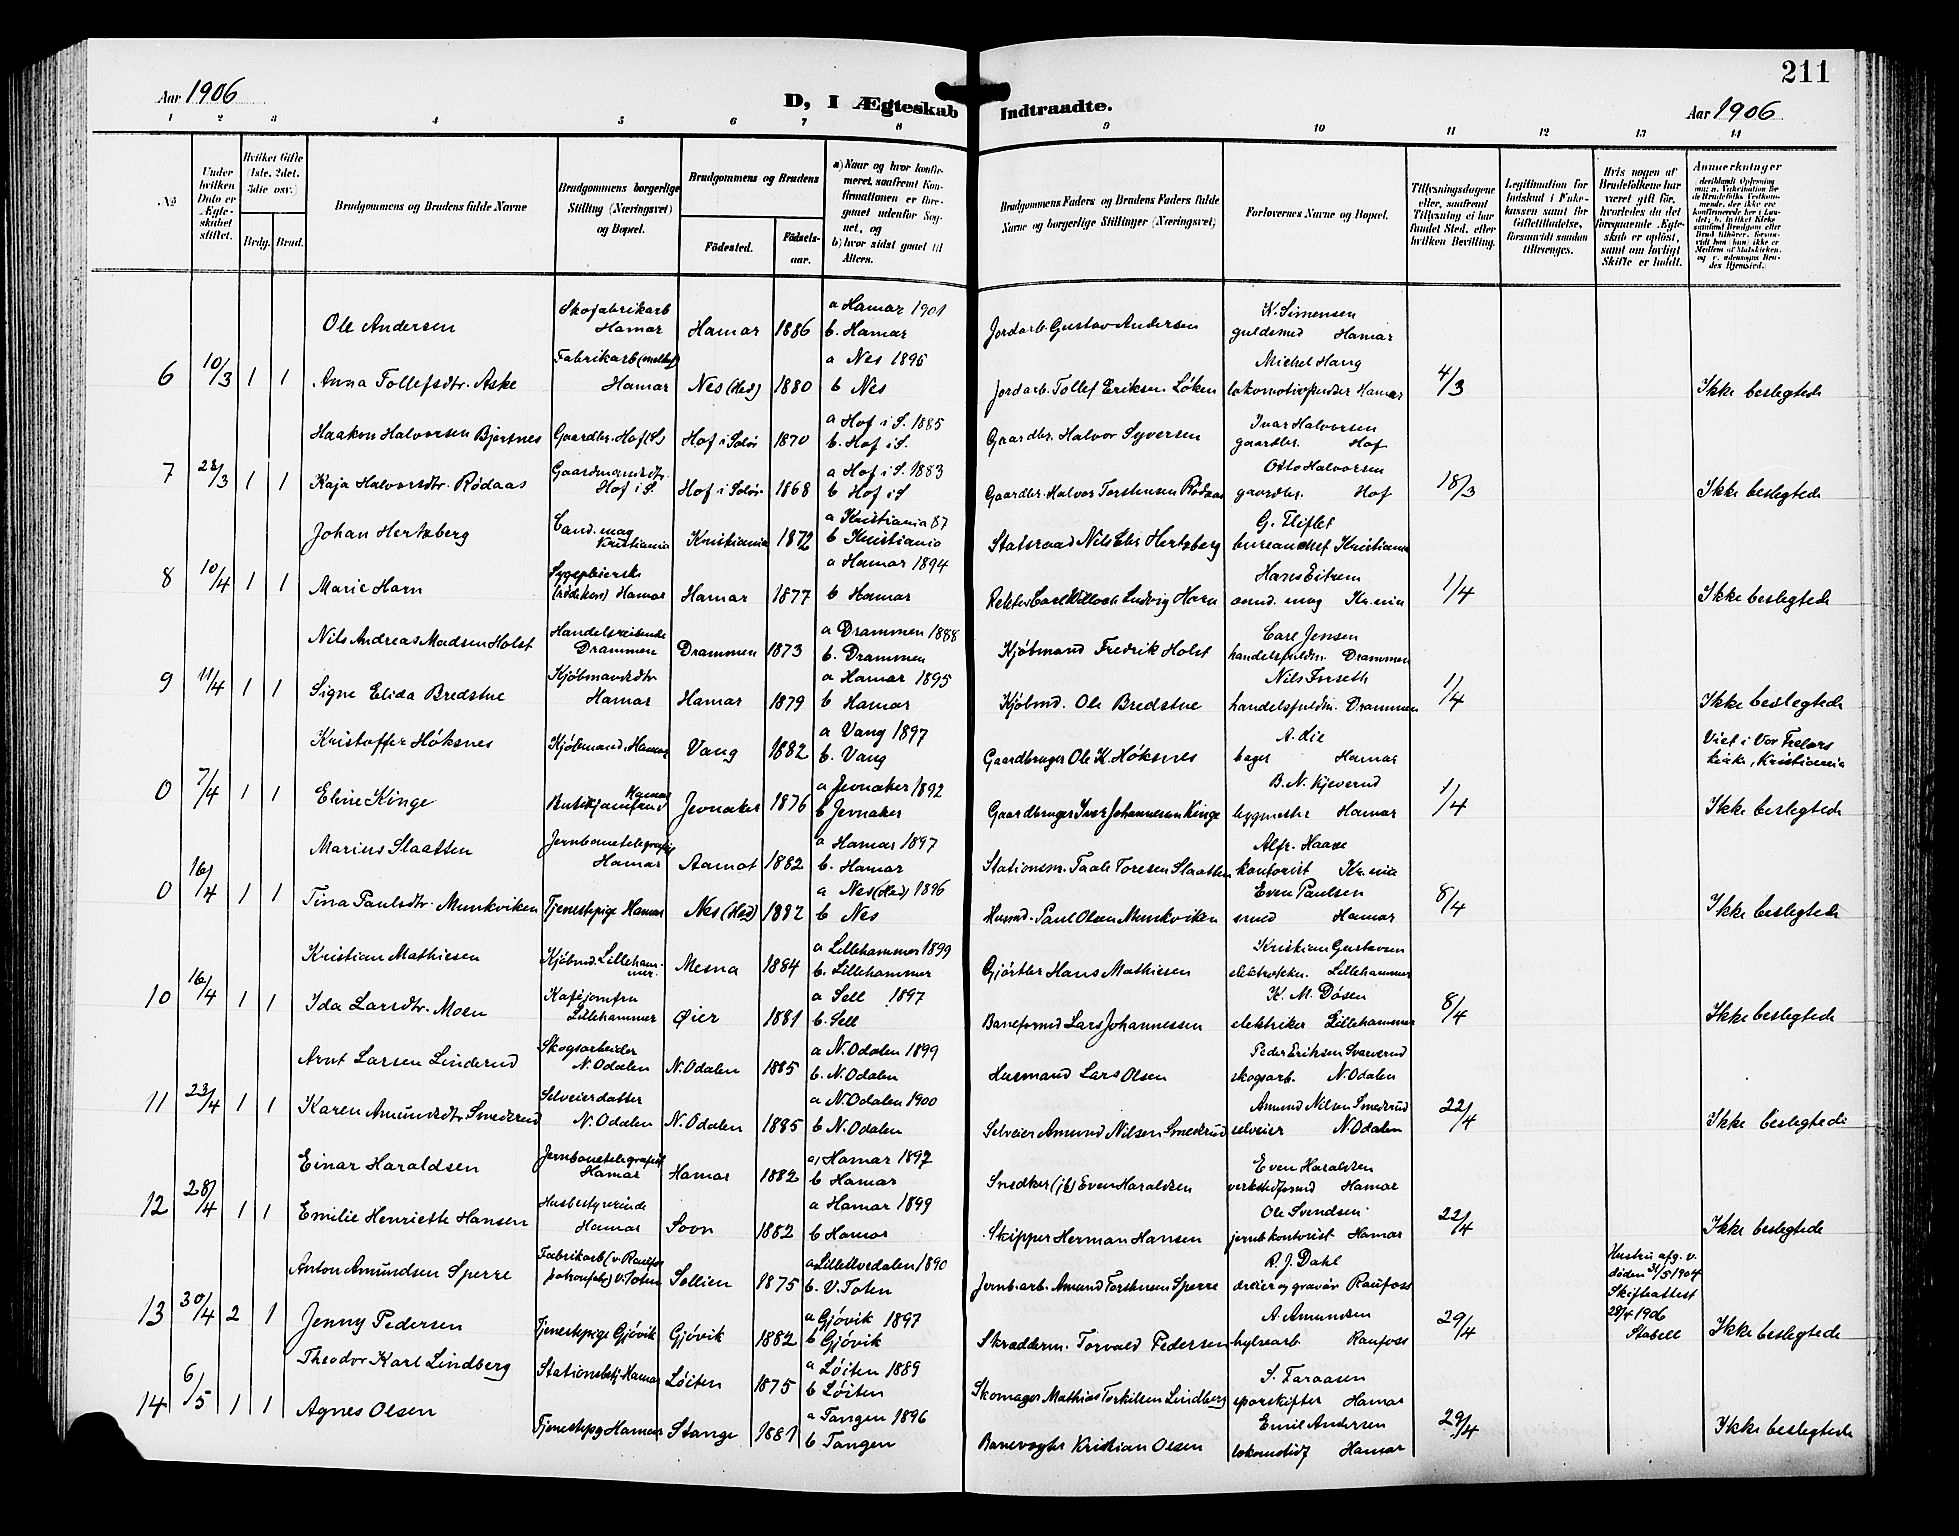 211
Aar 1906
D, I Ægteskab Indtraadte.
Aar 1906
1 2 3 4 5 6 7 8 9 10 11 12 13 14
No
Under hvilken Dato er Ægteskabet stiftet.
Hvilket Gifte (1ste, 2det, 3die osv.)
Brdg. Brud.
Brudgommens og Brudens fulde Navne
Brudgommens borgerlige Stilling (Næringsvei) og Bopæl.
Brudgommens og Brudens
Födested. Födselsaar.
a) Naar og hvor konfirmeret, saafremt Konfirmationen er foregaaet udenfor Sognet, og
b) hvor sidst gaaet til Alters.
Brudgommens Faders og Brudens Faders fulde Navne og borgerlige Stillinger (Næringsvei)
Forlovernes Navne og Bopæl.
Tillysningsdagene eller, saafremt Tillysning ei har fundet Sted, efter hvilken Bevilling.
Legitimation for Indskud i Enkekassen samt for Giftetilladelse, forsaavidt saadan tiltrænges.
Hvis nogen af Brudefolkene har været gift för, hvorledes da det foregaaende Ægteskab er oplöst, samt om lovligt Skifte er holdt.
Anmerkninger
Ole Andersen Skofabrikarb Hamar Hamar 1886 a Hamar 1901 b. Hamar Jordarb. Gustav Andersen K. Simensen guldsmed Hamar
6 10/3 1 1 Anna Tollefsdtr. Aske Fabrikarb Hamar Nes (Hed) 1880 a Nes 1896 b Nes Jordarb. Tollef Eriksen Løken Michel Haug Hamar 4/3 Ikke beslegtede
Haakon Halvorsen Bjørsnes Gaardbr. Hof (S) Hof i Solør 1870 a Hof i S. 1885 b. Hof i S. Gaardbr. Halvor Syversen Ivar Halvorsen gaardbr. Hof
7 28/3 1 1 Kaja Halvorsdtr. Rødaas Gaardmandsdtr. Hof i S. Hof i Solør 1868 a Hof i S. 1883 b Hof i S Gaardbr. Halvor Torstensen Rødaas Otto Halvorsen gaardbr. Hof 18/3 Ikke beslegtede
Johan Hertzberg Cand. mag Kristiania Kristiania 1872 a Kristiania 87 b Kristiania Statsraad Nils Hertzberg G. Fliflet bureauchef Kristiania
8 10/4 1 1 Marie Horn Sygepleierske Hamar Hamar 1877 a Hamar 1894 b Hamar Rektor Carl Ludvig Horn Hans Eitrem cand. mag Kr.nia 1/4 Ikke beslegtede
Nils Andreas Madsen Holst Handelsreisende Drammen Drammen 1873 a Drammen 1888 b. Drammen Kjøbmand Fredrik Holst Carl Jensen handelsfuldm. Drammen
9 11/4 1 1 Signe Elida Bredstue Kjøbmandsdtr Hamar Hamar 1879 a Hamar 1895 b Hamar Kjøbmd. Ole Bredstue Nils Forseth handelsfuldm. Drammen 1/4 Ikke beslegtede
Kristoffer Høksnes Kjøbmand. Hamar Vang 1882 a Vang 1897 b. Vang Gaardbruger Ole K. Høksnes A. Lie bager Hamar Viet i Vor Frelsers kirke, Kristiania
0 7/4 1 1 Eline Kinge Butikjomfru Hamar Jevnaker 1876 a Jevnaker 1892 b Jevnaker Gaardbruger Iver Johannesen Kinge B. N. Kjeverud byggmester Hamar 1/4 Ikke beslegtede
Marius Slaatten Jernbanetelegrafist Hamar Aamot 1882 a Hamar 1897 b. Hamar Stationsm. Taale Toresen Slaatten Alfr. Haase kontorist Kr.nia
0 16/4 1 1 Tina Paulsdtr. Munkviken Tjenestepige Hamar Nes (Hed) 1882 a Nes (Hed) 1896 b Nes Husmd. Paul Olsen Munkviken Even Paulsen smed Hamar 8/4 Ikke beslegtede
Kristian Mathiesen Kjøbmd. Lillehammer. Mesna 1884 a Lillehammer 1899 b. Lillehammer Gjørtler Hans Mathiesen Kristian Gustavsen Lillehammer
10 16/4 1 1 Ida Larsdtr. Moen Kaféjomfru Lillehammer Øier 1881 a Sell 1897 b. Sell Baneformd Lars Johannessen K. M. Døsen elektriker Lillehammer 8/4 Ikke beslegtede
Arnt Larsen Linderud Skogsarbeider N. Odalen N. Odalen 1885 a N. Odalen 1899 b. N. Odalen Husmand Lars Olsen Peder Eriksen Svarverud skogsarb. N. Odalen
11 23/4 1 1 Karen Amundsdtr Smedsrud Selveierdatter N. Odalen N. Odalen 1885 a N. Odalen 1900 b N. Odalen Selveier Amund Nilsen Smedsrud Amund Nilsen Smedsrud selveier N. Odalen 22/4 Ikke beslegtede
Einar Haraldsen Jernbanetelegrafist Hamar Hamar 1882 a) Hamar 1897 b Hamar Snedker (jb) Even Haraldsen Even Haraldsen verkstedformd Hamar
12 28/4 1 1 Emilie Henriette Hansen Husbestyrerinde Hamar Sovn 1882 a Hamar 1899 b Hamar Skipper Herman Hansen Ole Svendsen jernbkontorist Hamar 22/4 Ikke beslegtede
Anton Amundsen Sperre Fabrikarb (v. Raufos patronfabr) V. Toten Sollien 1875 a Lilleelvedalen 1890 b. V. Toten Jernb.arb. Amund Torstensen Sperre R. J. Dahl dreier og gravør Raufoss Hustru afg. v. døden 31/5 1904 Skifteattest 28/4 1906 Stabell
13 30/4 2 1 Jenny Pedersen Tjenestepige Gjøvik Gjøvik 1882 a Gjøvik 1897 b Gjøvik Skrædderm. Torvald Pedersen A. Amundsen hylsearb. Raufoss 29/4 Ikke beslegtede
Theodor Karl Lindberg Stationsbetj. Hamar Løiten 1875 a Løiten 1889 b Løiten Skomager Mathias Torkilsen Lindberg S. Faraasen sporskifter Hamar
14 6/5 1 1 Agnes Olsen Tjenestepg Hamar Stange 1881 a Tangen 1896 b Tangen Banevogter Kristian Olsen Emil Andersen lokomotivf Hamar 29/4 Ikke beslegtede